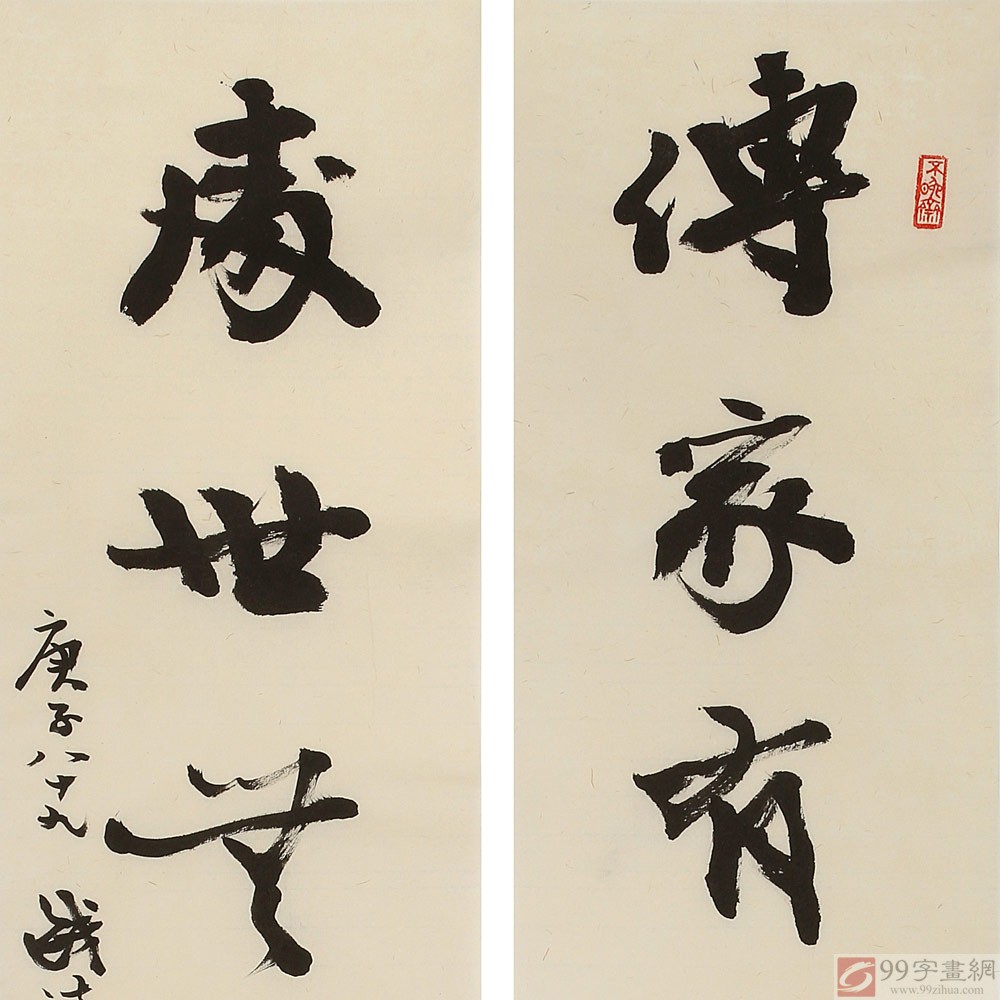 傳家有
處世無
庚子八十九
99字畫網
www.99zihua.com